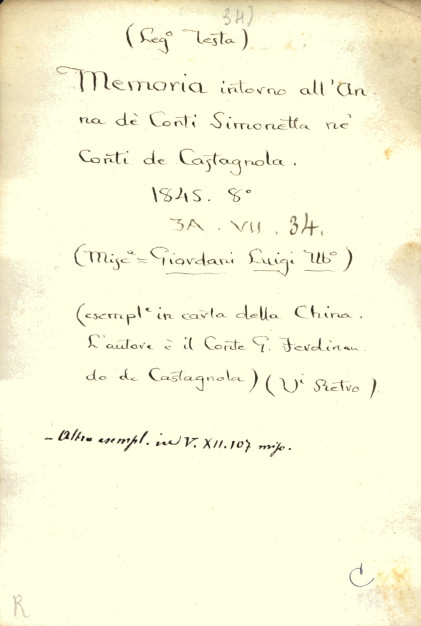 34)
(Leg.º Testa)
Memoria intorno all'An
na de Conti Simonetta ne'
Conti de Castagnola.
1845. 8º
3A. VII. 34.
(Misc.ª = Giordani Luigi Ubº)
(esempl.e in carta della China.
L'autore è il Conte G. Ferdinan
do de Castagnola) (Vi Retro)
- Altro esempl. in V. XII. 107 misc.
C
R